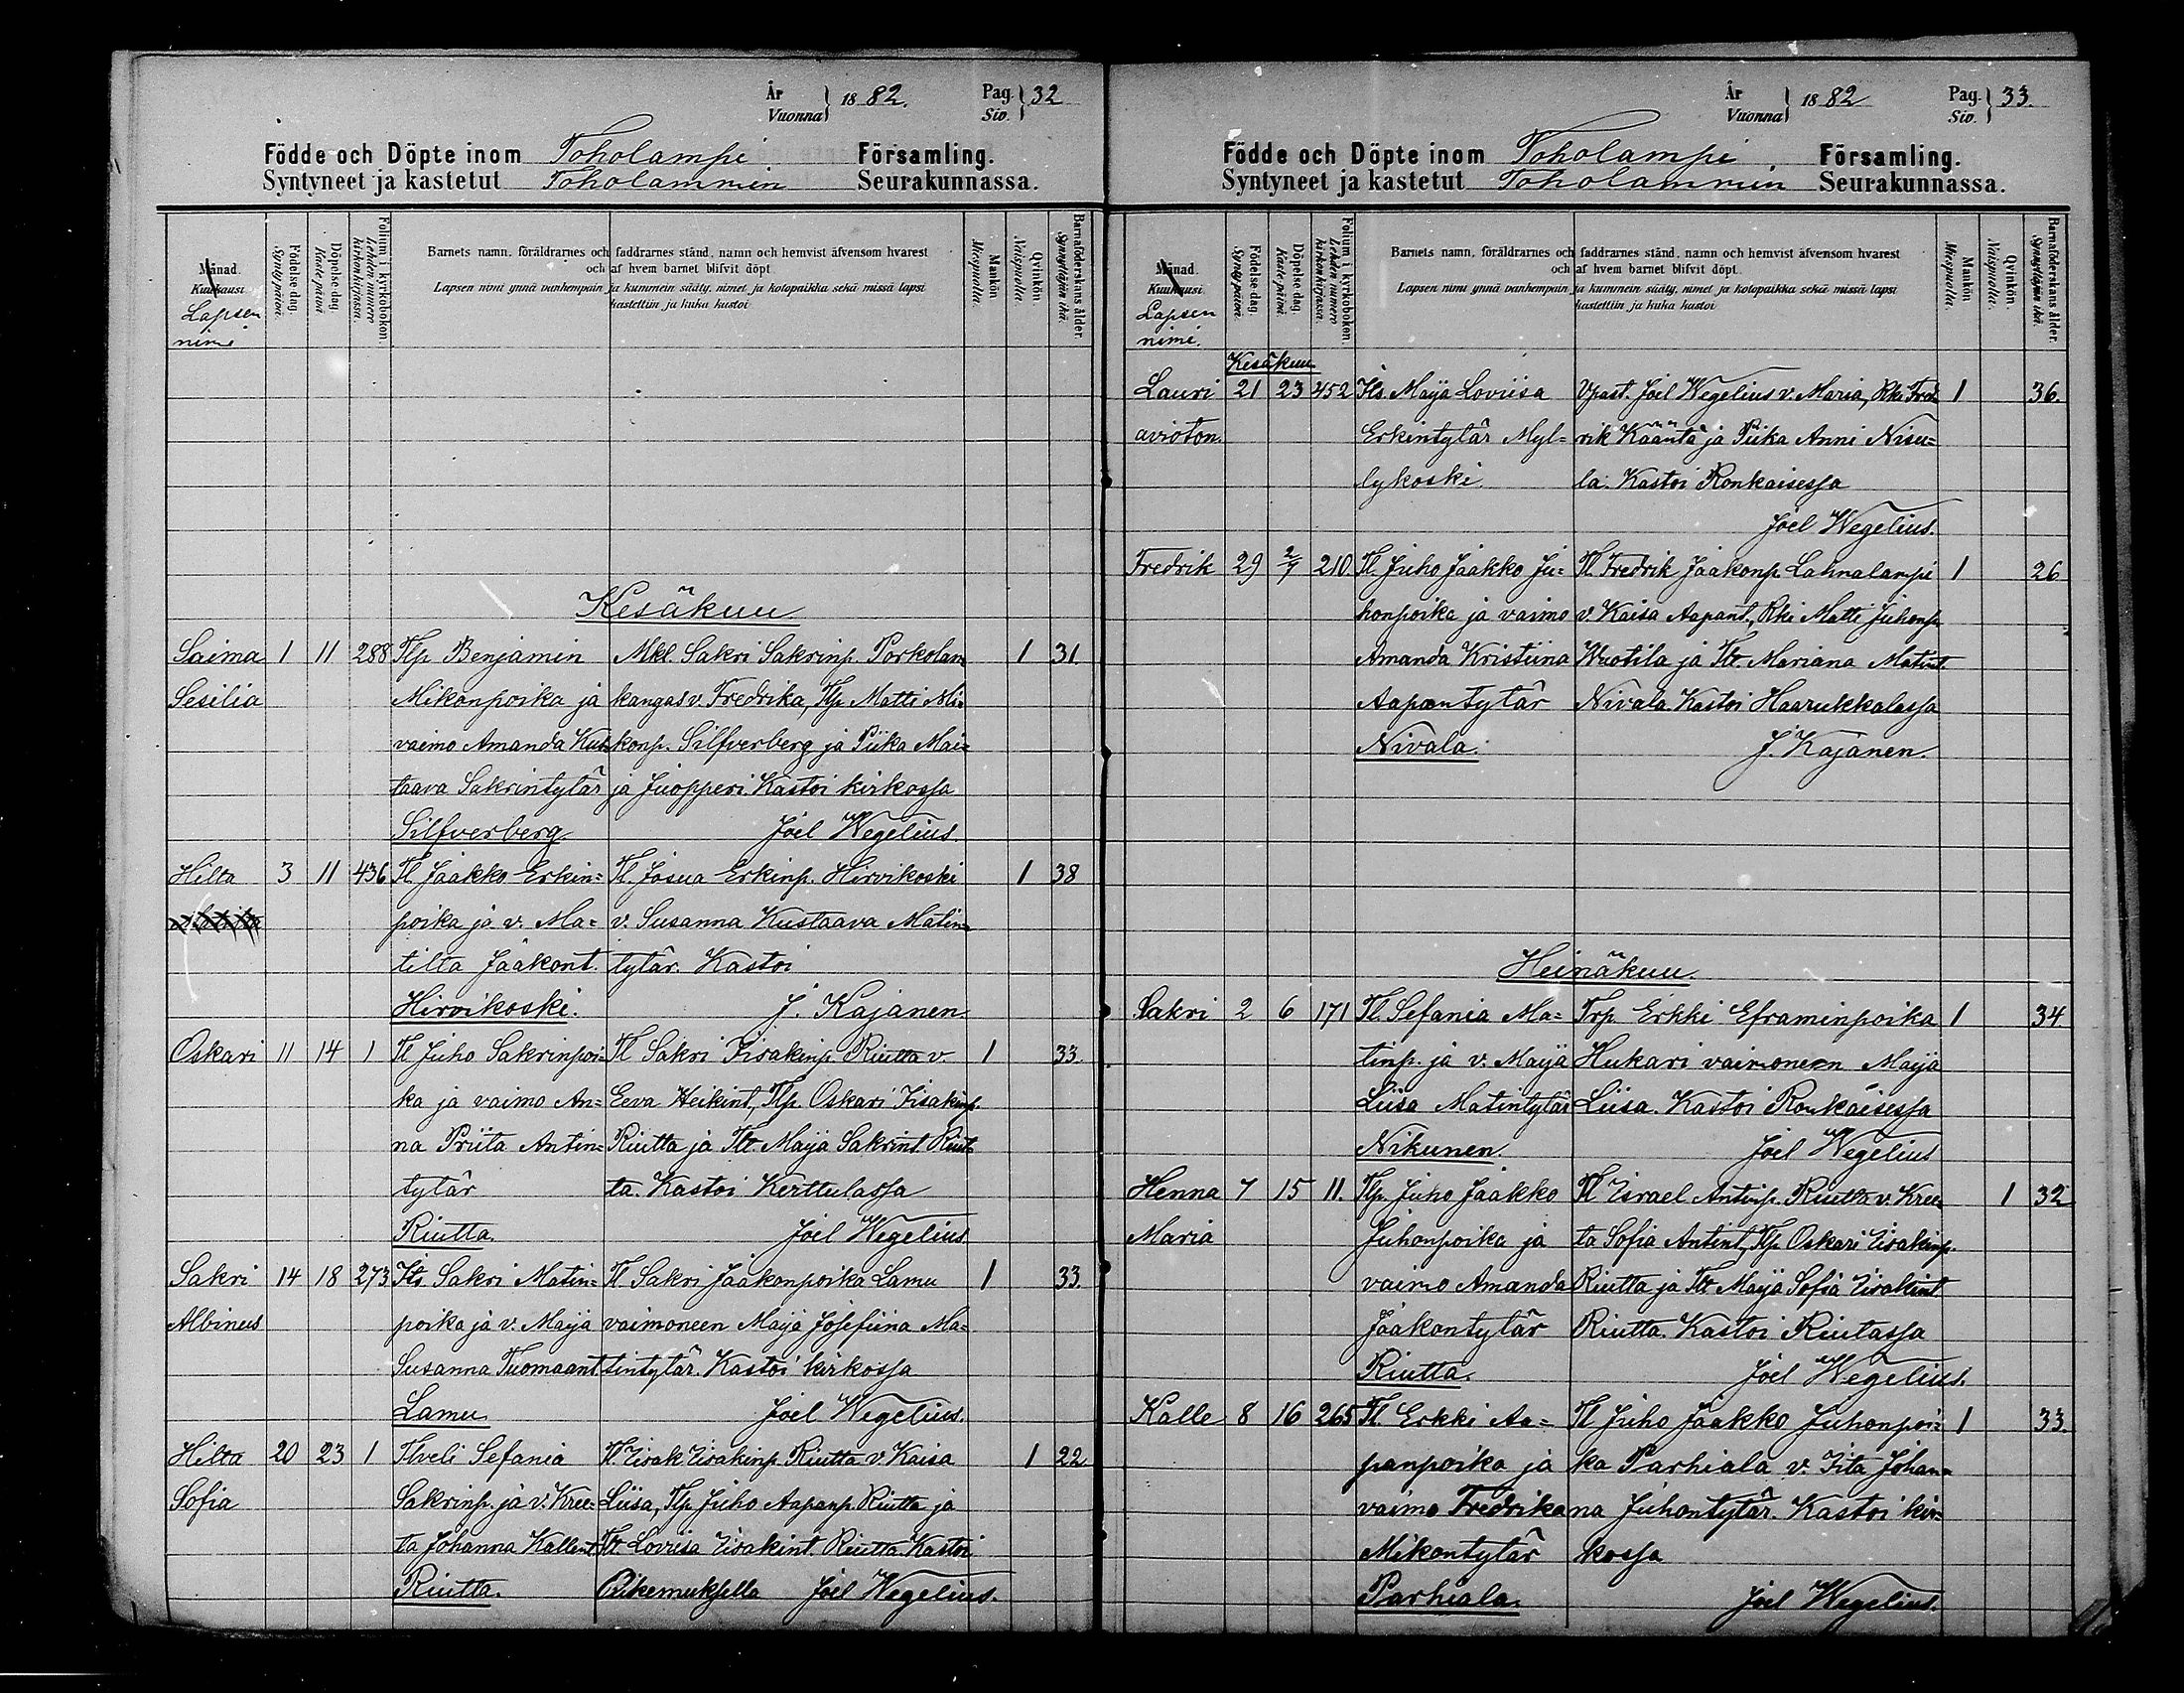 År
Vuonna } 1882.
Pag.
Siv. } 32
Födde och Döpte inom Toholampi Församling.
Syntyneet ja kastetut Toholammin Seurakunnassa.
Månad.
Kuukausi
Lapsen
nimi
Födelse dag.
Syntypäivä.
Döpelse dag.
Kastepäivä
Folium i kyrkobokon.
Lehden numero
kirkonkirjassa.
Barnets namn, föräldrarnes och faddrarnes stånd, namn och hemvist äfvensom hvarest
och af hvem barnet blifvit döpt.
Lapsen nimi ynnä vanhempain ja kummein sääty, nimet ja kotopaikka sekä missä lapsi
kastettiin ja kuka kastoi
Mankön
Miespuolia.
Qvinkön.
Naispuolia.
Barnaföderskans ålder.
Synnyttäjän ikä.
Kesäkuu
Saima 1 11 288 Tlp Benjamin Mkl. Sakri Sakrinp. Porkolan 1 31
Sesilia Mikonpoika ja kangas v. Fredrika, Tlp. Matti Mi-
vaimo Amanda Kus- konp. Silfverberg ja Piika Mai-
taava Sakrintytär ja Juopperi. Kastoi kirkossa
Silfverberg Joel Wegelius.
Hilta 3 11 436 Tl Jaakko Erkin= Tl Josua Erkinp. Hirvikoski 1 38
poika ja v. Ma= v. Susanna Kustaava Matin=
tilta Jaakont. tytär. Kastoi
Hirvikoski. J. Kajanen
Oskari 11 14 1 Tl Juho Sakrinpoi- Tl Sakri Iisakinp Riutta v. 1 33.
ka ja vaimo An= Eeva Heikint, Tlp. Oskari Iisakinp.
na Priita Antin= Riutta ja Tlt. Maija Sakrint. Riut-
tytär ta. Kastoi Kerttulassa
Riutta. Joel Wegelius
Sakri 14 18 273 Its. Sakri Matin= Tl Sakri Jaakonpoika Lamu 1 33.
Albinus poika ja v. Maija vaimoneen Maija Josefiina Ma=
Susanna Tuomaant tintytär. Kastoi kirkossa
Lamu Joel Wegelius.
Hilta 20 23 1 Tlveli Sefania Tl Iisak Iisakinp. Riutta v. Kaisa 1 22
Sofia Sakrinp. ja v. Kree- Liisa, Tlp. Juho Aapanp. Riutta ja
ta Johanna Kallent. Tlt. Loviisa Iisakint. Riutta. Kastoi
Riutta. Joel Wegelius.
År
Vuonna } 1882
Pag.
Siv. } 33.
Födde och Döpte inom Toholampi Församling.
Syntyneet ja kastetut Toholammin Seurakunnassa.
Månad.
Kuukausi
Lapsen
nimi.
Födelse dag.
Syntypäivä.
Döpelse dag.
Kastepäivä.
Folium i kyrkobokon.
Lehden numero
kirkonkirjassa.
Barnets namn, föräldrarnes och faddrarnes stånd, namn och hemvist äfvensom hvarest
och af hvem barnet blifvit döpt.
Lapsen nimi ynnä vanhempain ja kummein sääty, nimet ja kotopaikka sekä missä lapsi
kastettiin ja kuka kastoi
Mankön
Miespuolia.
Qvinkön.
Naispuolia.
Barnaföderskans ålder.
Synnyttäjän ikä.
Kesäkuu
Lauri 21 23 452 Its. Maija Loviisa Vpast. Joel Wegelius v. Maria, Rki Fred- 1 36.
avioton. Erkintytär Myl= rik Kääntä ja Piika Anni Nisu=
lykoski. la. Kastoi Ronkaisessa
Joel Wegelius.
Fredrik 29 2/7 210 Tl Juho Jaakko Ju= Tl. Fredrik Jaakonp. Lahnalampi 1 26
honpoika ja vaimo v. Kaisa Aapant., Rki Matti Juhonp.
Amanda Kristiina Wuotila ja Tlt. Mariana Matint
Aapantytär Nivala. Kastoi Haarukkalassa
Nivala. J. Kajanen.
Heinäkuu
Sakri 2 6 171 Tl. Sefania Ma= Trp. Erkki Eframinpoika 1 34
tinp. ja v. Maija Hukari vaimoneen Maija
Liisa Matintytär Liisa. Kastoi Ronkaisessa
Nikunen Joel Wegelius
Henna 7 15 11. Tlp. Juho Jaakko Tl Israel Antinp. Riutta v. Kree- 1 32
Maria Juhonpoika ja ta Sofia Antint, Tlp. Oskari Iisakinp.
vaimo Amanda Riutta ja Tlt Maija Sofia Iisakint
Jaakontytär Riutta. Kastoi Riutassa
Riutta. Joel Wegelius.
Kalle 8 16 265 Tl. Erkki Aa= Tl Juho Jaakko Juhonpoi= 1 33.
panpoika ja ka Parhiala v. Iita Johan=
vaimo Fredrika na Juhontytär. Kastoi kir=
Mikontytär kossa
Parhiala. Joel Wegelius.